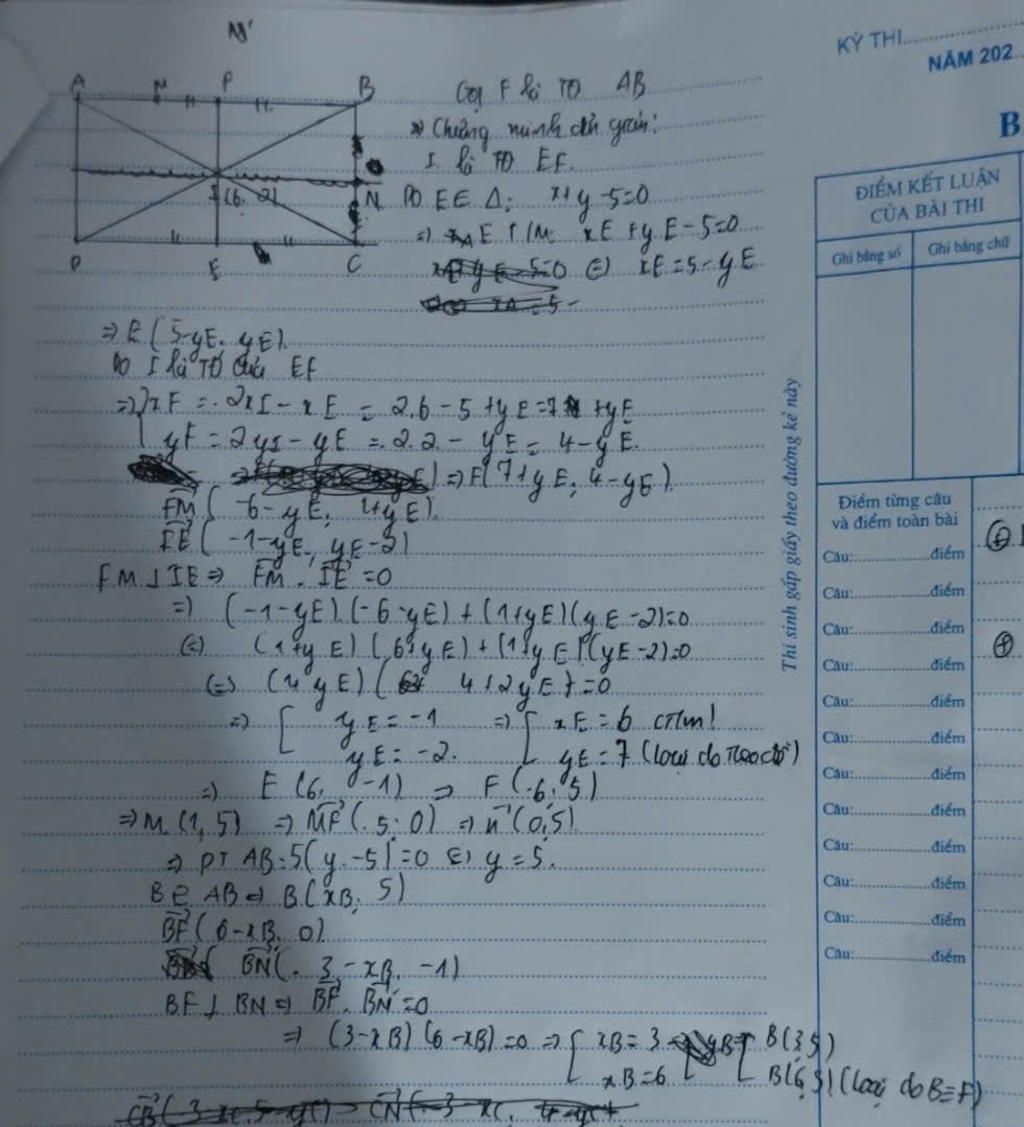 N'
KỲ THI
NĂM 202
B
A M F B
I(6, 2) N
D E C
Gọi F là TĐ AB
Chứng minh đơn giản:
I là TĐ EF.
Do E∈ Δ: x+y-5=0
=> E T/M: xE + yE-5=0
⇔ xE=5-yE
=> E(5-yE, yE).
Do I là TĐ của EF
=> { xF = 2xI - xE = 2.6-5+yE=7+yE
yF = 2yI-yE = 2.2-yE = 4-yE.
=> F(7+yE; 4-yE).
FM(-6-yE; 1+yE).
IE(-1-yE, yE-2)
FM⊥IE => FM.IE=0
=> (-1-yE).(-6-yE)+(1+yE)(yE-2)=0
⇔ (1+yE)(6+yE)+(1+yE)(yE-2)=0
⇔ (1+yE)(4+2yE)=0
=> [ yE=-1 => [ xE=6 (T/m)
yE=-2. yE=7 (loại do
=> E(6, -1) => F(6; 5)
=> M(1, 5) => MF(5; 0) => n(0,5).
=> PT AB: 5(y-5)=0 ⇔ y=5.
B∈AB => B(xB; 5)
BF(6-xB, 0)
BN(3-xB, -1)
BF⊥BN => BF.BN=0
=> (3-xB)(6-xB)=0 => [ xB=3 [ B(3,5)
xB=6 B(6,5) (loại do B≡F)
ĐIỂM KẾT LUẬN
CỦA BÀI THI
Ghi bằng số Ghi bằng chữ
Thí sinh gấp giấy theo đường kẻ này
Điểm từng câu
và điểm toàn bài
Câu:..............điểm
Câu:..............điểm
Câu:..............điểm
Câu:..............điểm
Câu:..............điểm
Câu:..............điểm
Câu:..............điểm
Câu:..............điểm
Câu:..............điểm
Câu:..............điểm
Câu:..............điểm
Câu:..............điểm